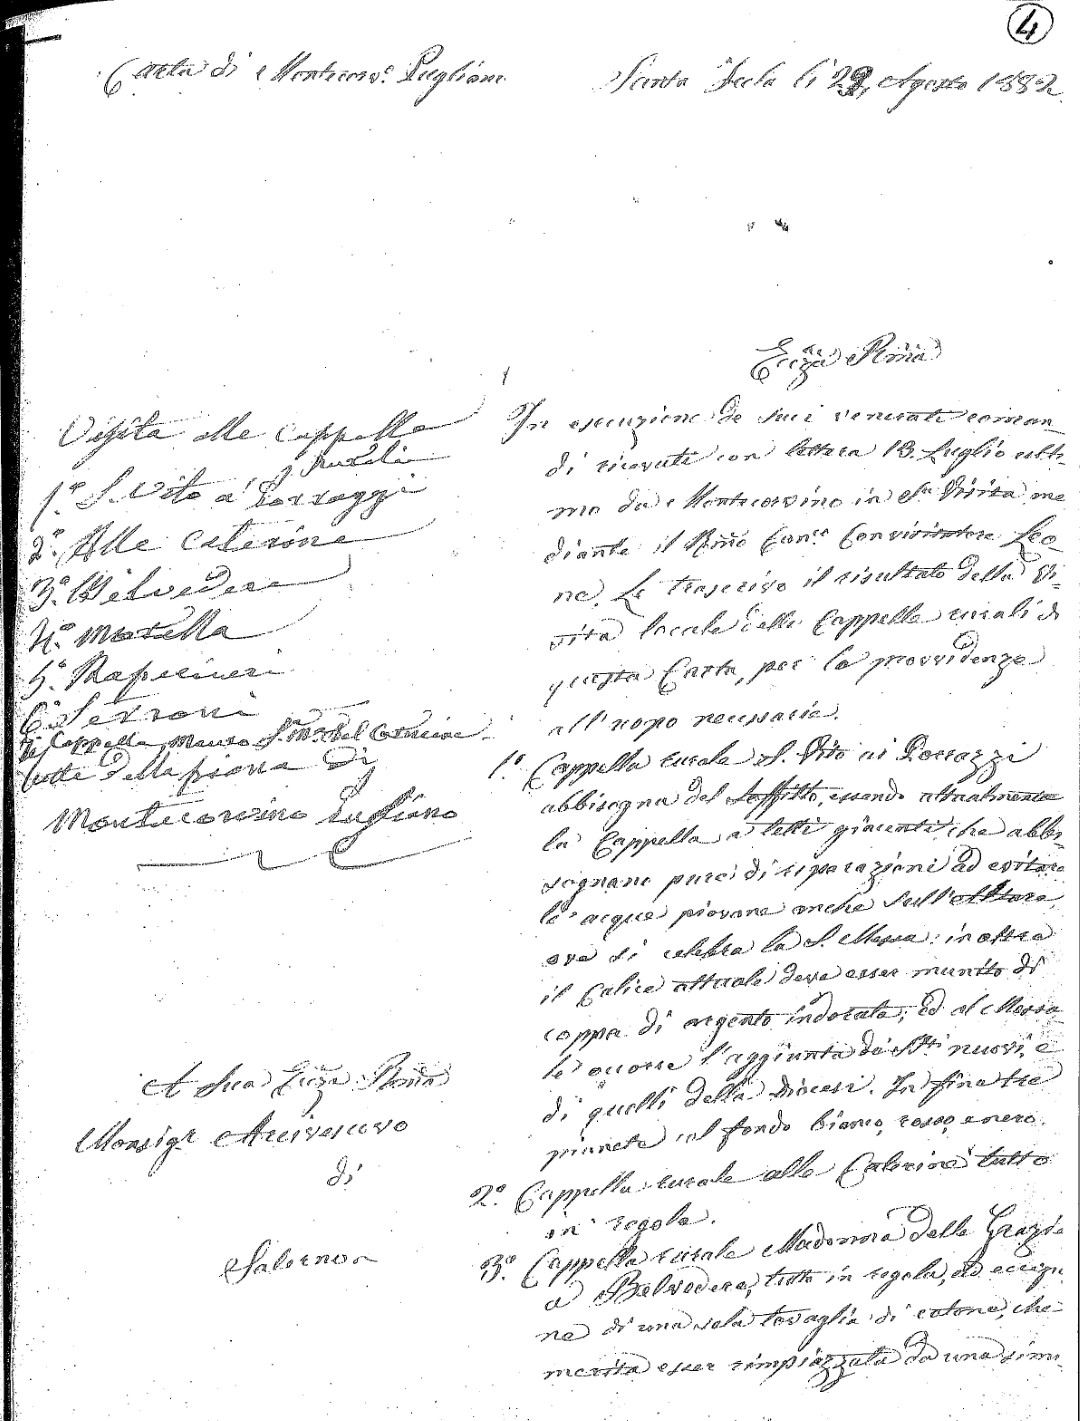 4
Carta di Montecorv.º Pugliano
Santa Tecla li 29, Agosto 1882.
Ecc.za Rm̃a
Visita alle Cappelle
Rurali
1.º S. Vito a' Porrazzi
2.º Alle Caterine
3.º Belvedere
4.º Morella
5.º Rapicineri
6.º Serroni
7.º Cappella Mauro S. M.ª del Carmine
tutte della piana di
Montecorvino Pugliano
A Sua Ecc.za Rm̃a
Monsig.r Arcivescovo
di
Salerno
In esecuzione de' suoi venerati coman-
di ricevuti con lettera 13 Luglio ulti-
mo da Montecorvino in S.ta Visita me
diante il Rm̃o Can.co Convisitatore Leo-
ne, Le trascrivo il risultato della Vi-
sita locale delle Cappelle rurali di
questa Carta, per le provvidenze
all'uopo necessarie.
1.º Cappella rurale S. Vito ai Porrazzi
abbisogna del soffitto, essendo attualmente
la Cappella a tetti giacenti, che abbi-
sognano pure di riparazioni ad evitare
le acque piovane anche sull'Altare,
ove si celebra la S. Messa: inoltre
il Calice attuale deve esser munito di
coppa di argento indorata; ed al Messa-
le occorre l'aggiunta de' S.ti nuovi, e
di quelli della Diocesi. In fine tre
pianete col fondo bianco, rosso, e nero.
2.º Cappella rurale alle Caterine tutto
in regola.
3.º Cappella rurale Madonna delle Grazie
a Belvedere, tutto in regola, ad eccezio-
ne di una sola tovaglia di cotone, che
merita esser rimpiazzata da una simi-